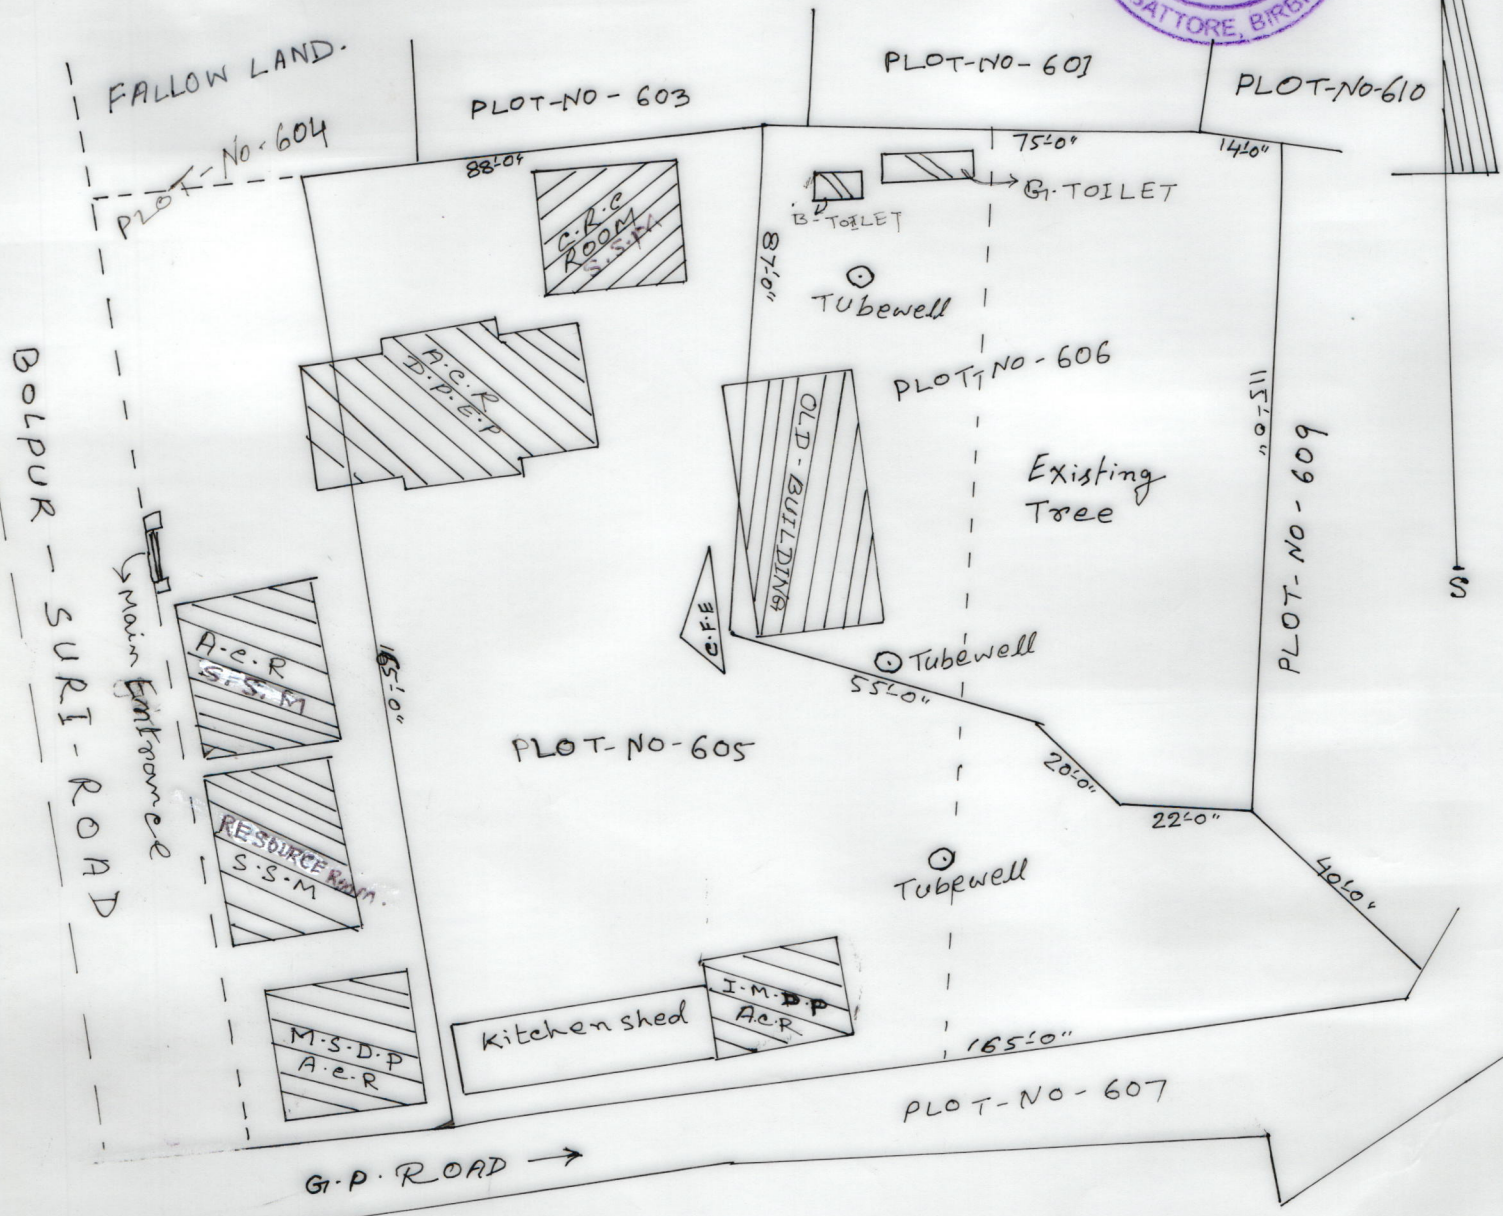 GATTORE, BIRB
FALLOW LAND.
PLOT-NO-603
PLOT-NO-601
PLOT-NO-610
PLOT-NO-604
88'-0"
75'-0"
14'-0"
C.R.C
ROOM
G.TOILET
B-TOILET
87'-0"
Tubewell
A.C.R
D.P.E.P
PLOT-NO-606
OLD-BUILDING
115'-0"
Existing
Tree
PLOT-NO-609
BOLPUR-SURI-ROAD
Main Entrance
C.F.E
S
A.C.R
S.S.M
165'-0"
Tubewell
55'-0"
PLOT-NO-605
20'-0"
22'-0"
RESOURCE Room.
S.S.M
Tubewell
40'-0"
M.S.D.P
A.C.R
Kitchen shed
I.M.D.P
A.C.R
165'-0"
PLOT-NO-607
G.P. ROAD →